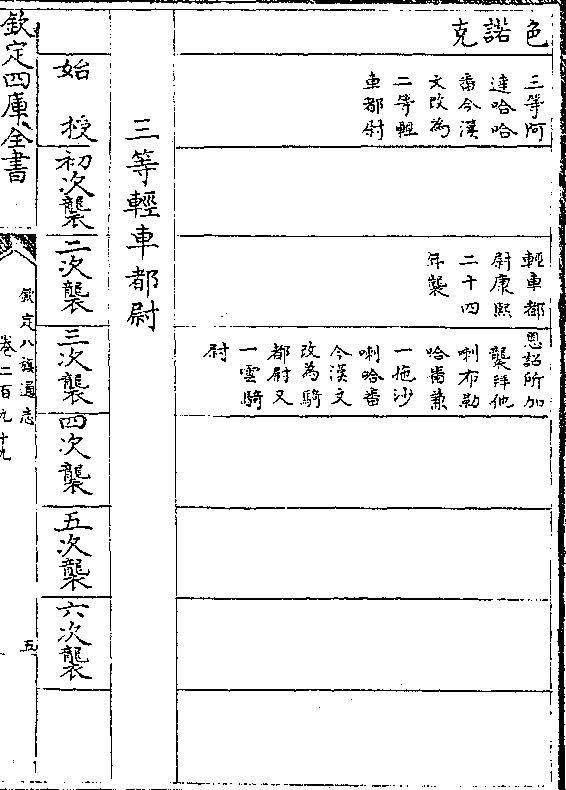 色諾克
三等阿
達哈哈
番今漢
文改為
二等輕
車都尉
輕車都
尉康熙
二十四
年襲
恩詔所加
襲拜他
喇布勒
哈番兼
一拖沙
喇哈番
今漢文
改為騎
都尉又
一雲騎
尉
三等輕車都尉
始授
初次襲
二次襲
三次襲
四次襲
五次襲
六次襲
欽定四庫全書
欽定八旗通志
卷二百九十九
五